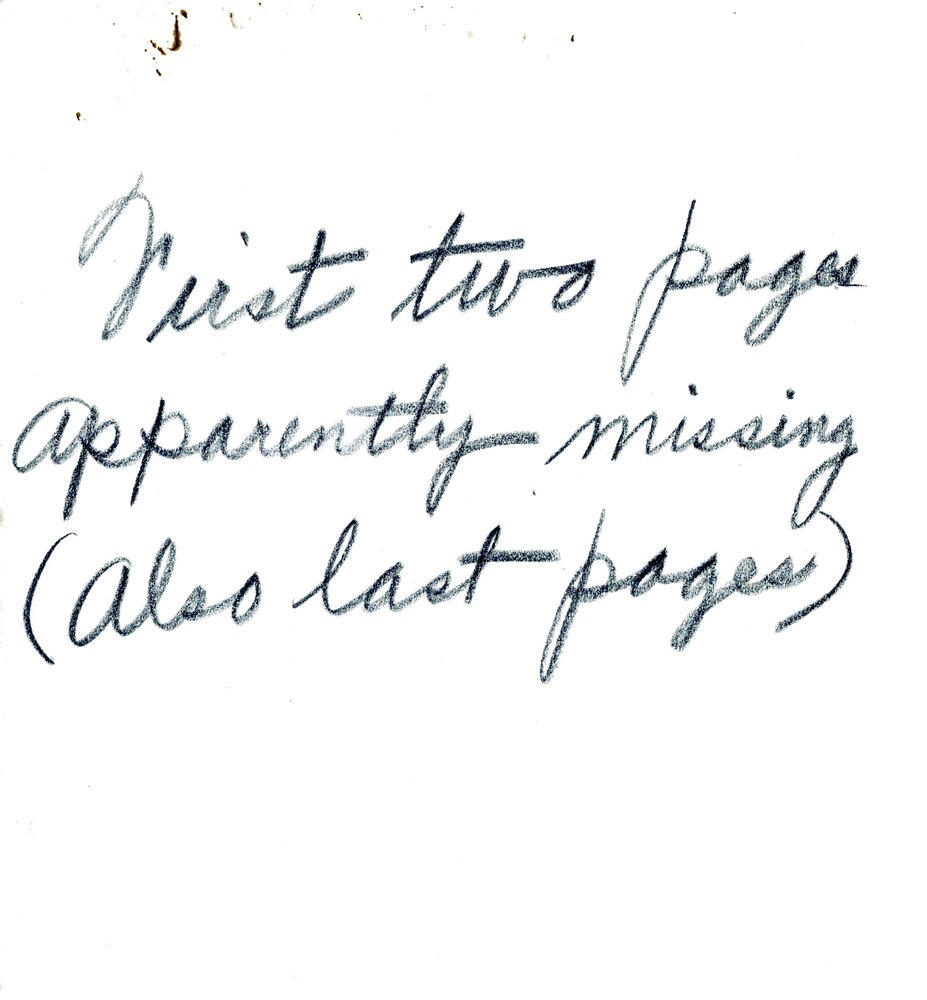 First two pages
apparently missing
(Also last pages)